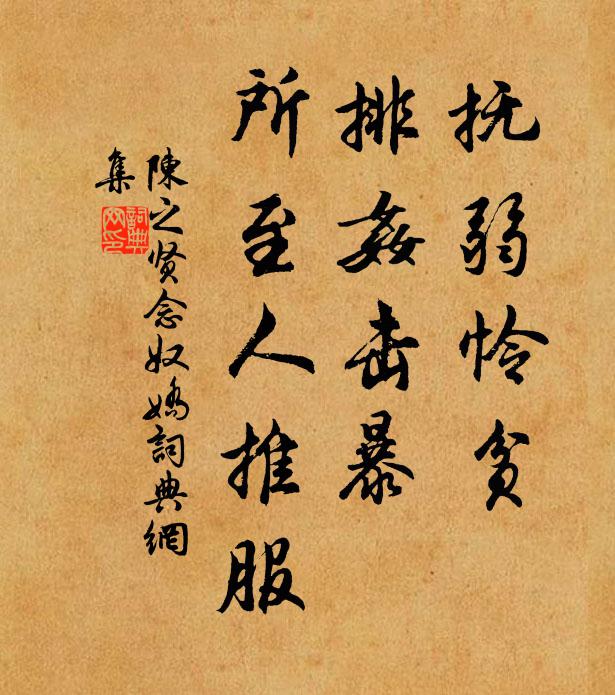 抚弱怜贫
排姦击暴
所至人推服
陳之贤念奴娇詞典網
集
詞典網印